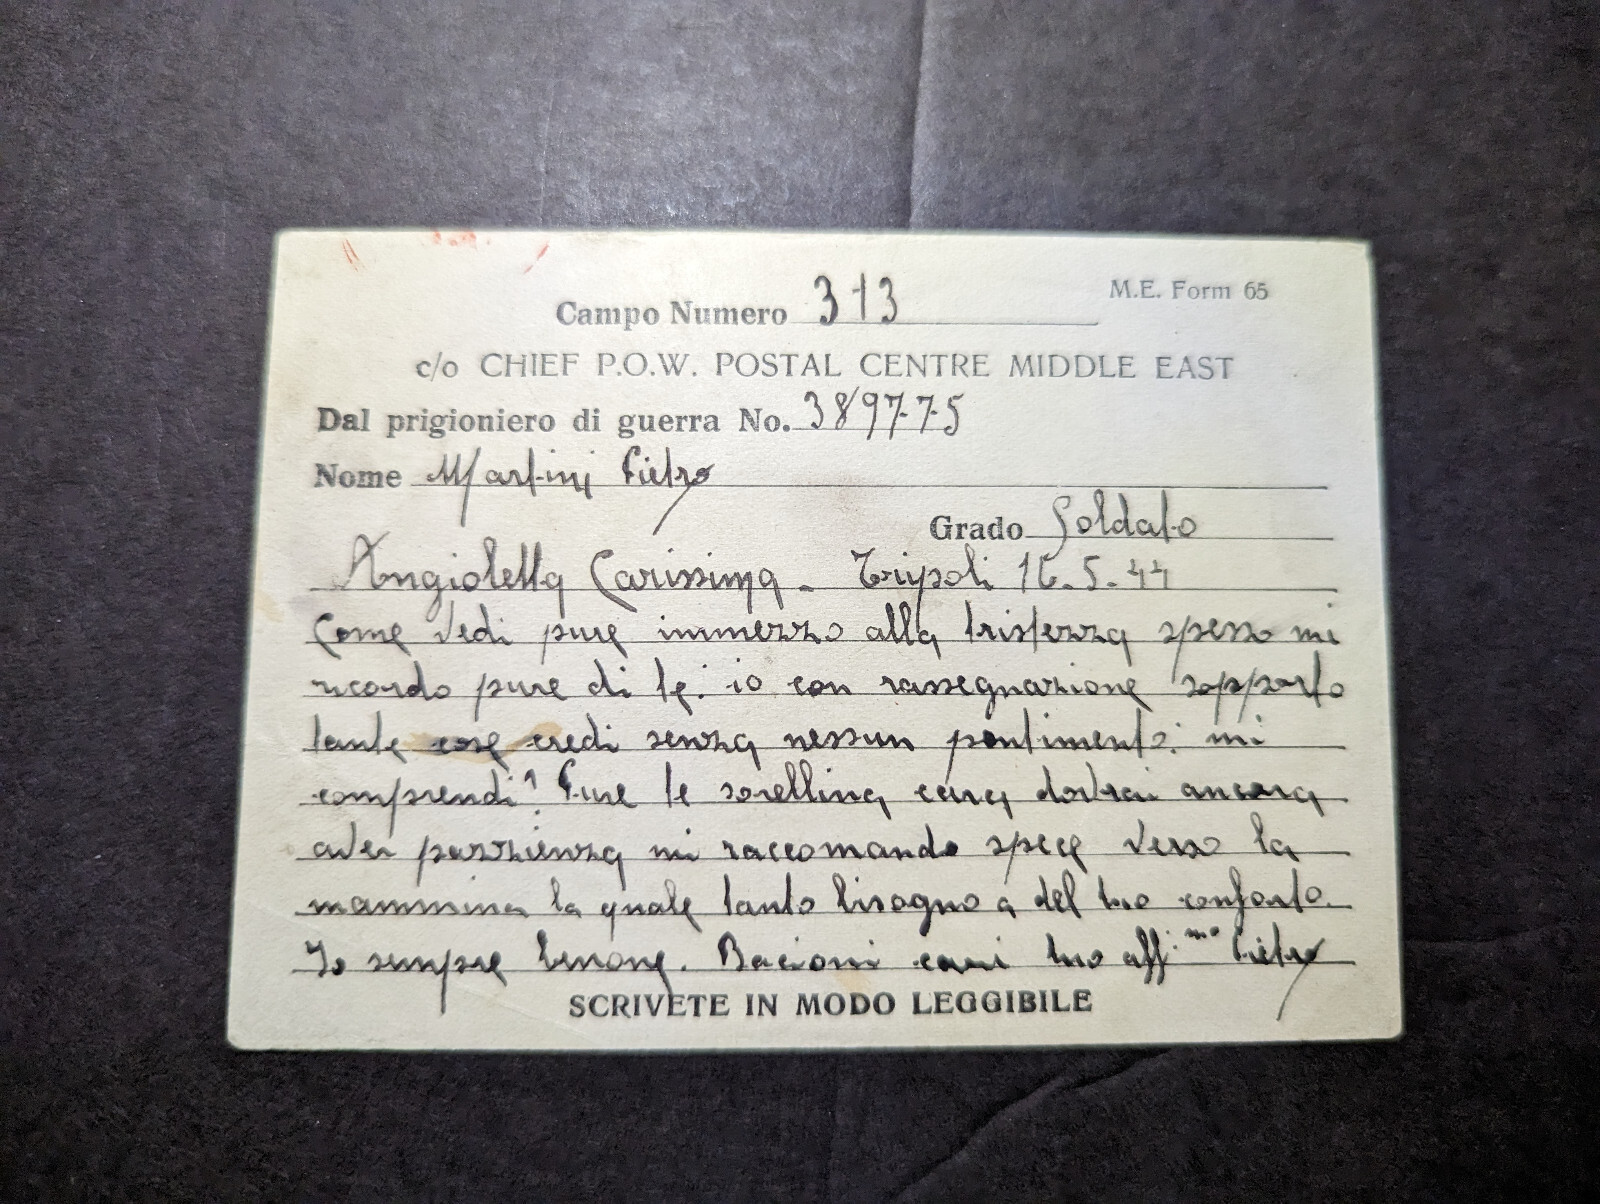 Campo Numero 313
M.E. Form 65
c/o CHIEF P.O.W. POSTAL CENTRE MIDDLE EAST
Dal prigioniero di guerra No. 389775
Nome Martini Pietro
Grado Soldato
Angioletta Carissima - Tripoli 16.5.44
Come vedi pure immezzo alla tristezza spesso mi
ricordo pure di te: io con rassegnazione sopporto
tante cose credi senza nessun pentimento: mi
comprendi? Pure te sorellina cara dovrai ancora
aver pazzienza mi raccomando spece verso la
mammina la quale tanto bisogno a del tuo conforto.
Io sempre benone. Bacioni cari tuo aff:mo Pietro
SCRIVETE IN MODO LEGGIBILE